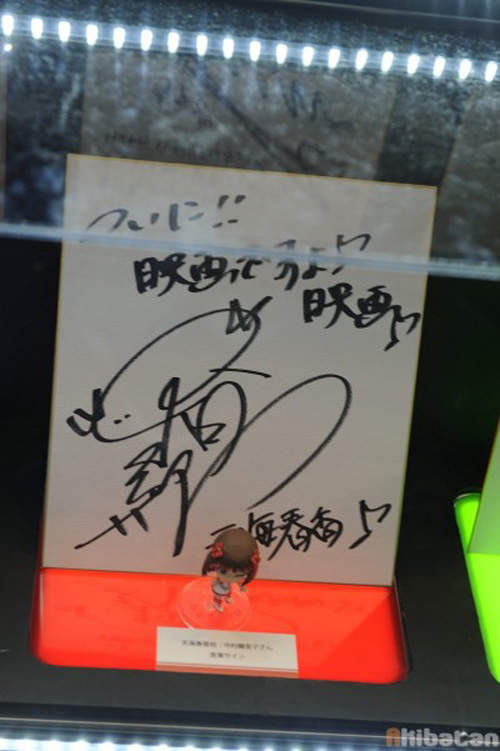 ついに!!
映画ですよ♪
映画♪
天海春香♪
天海春香役:中村繪里子さん
直筆サイン
Akibatan